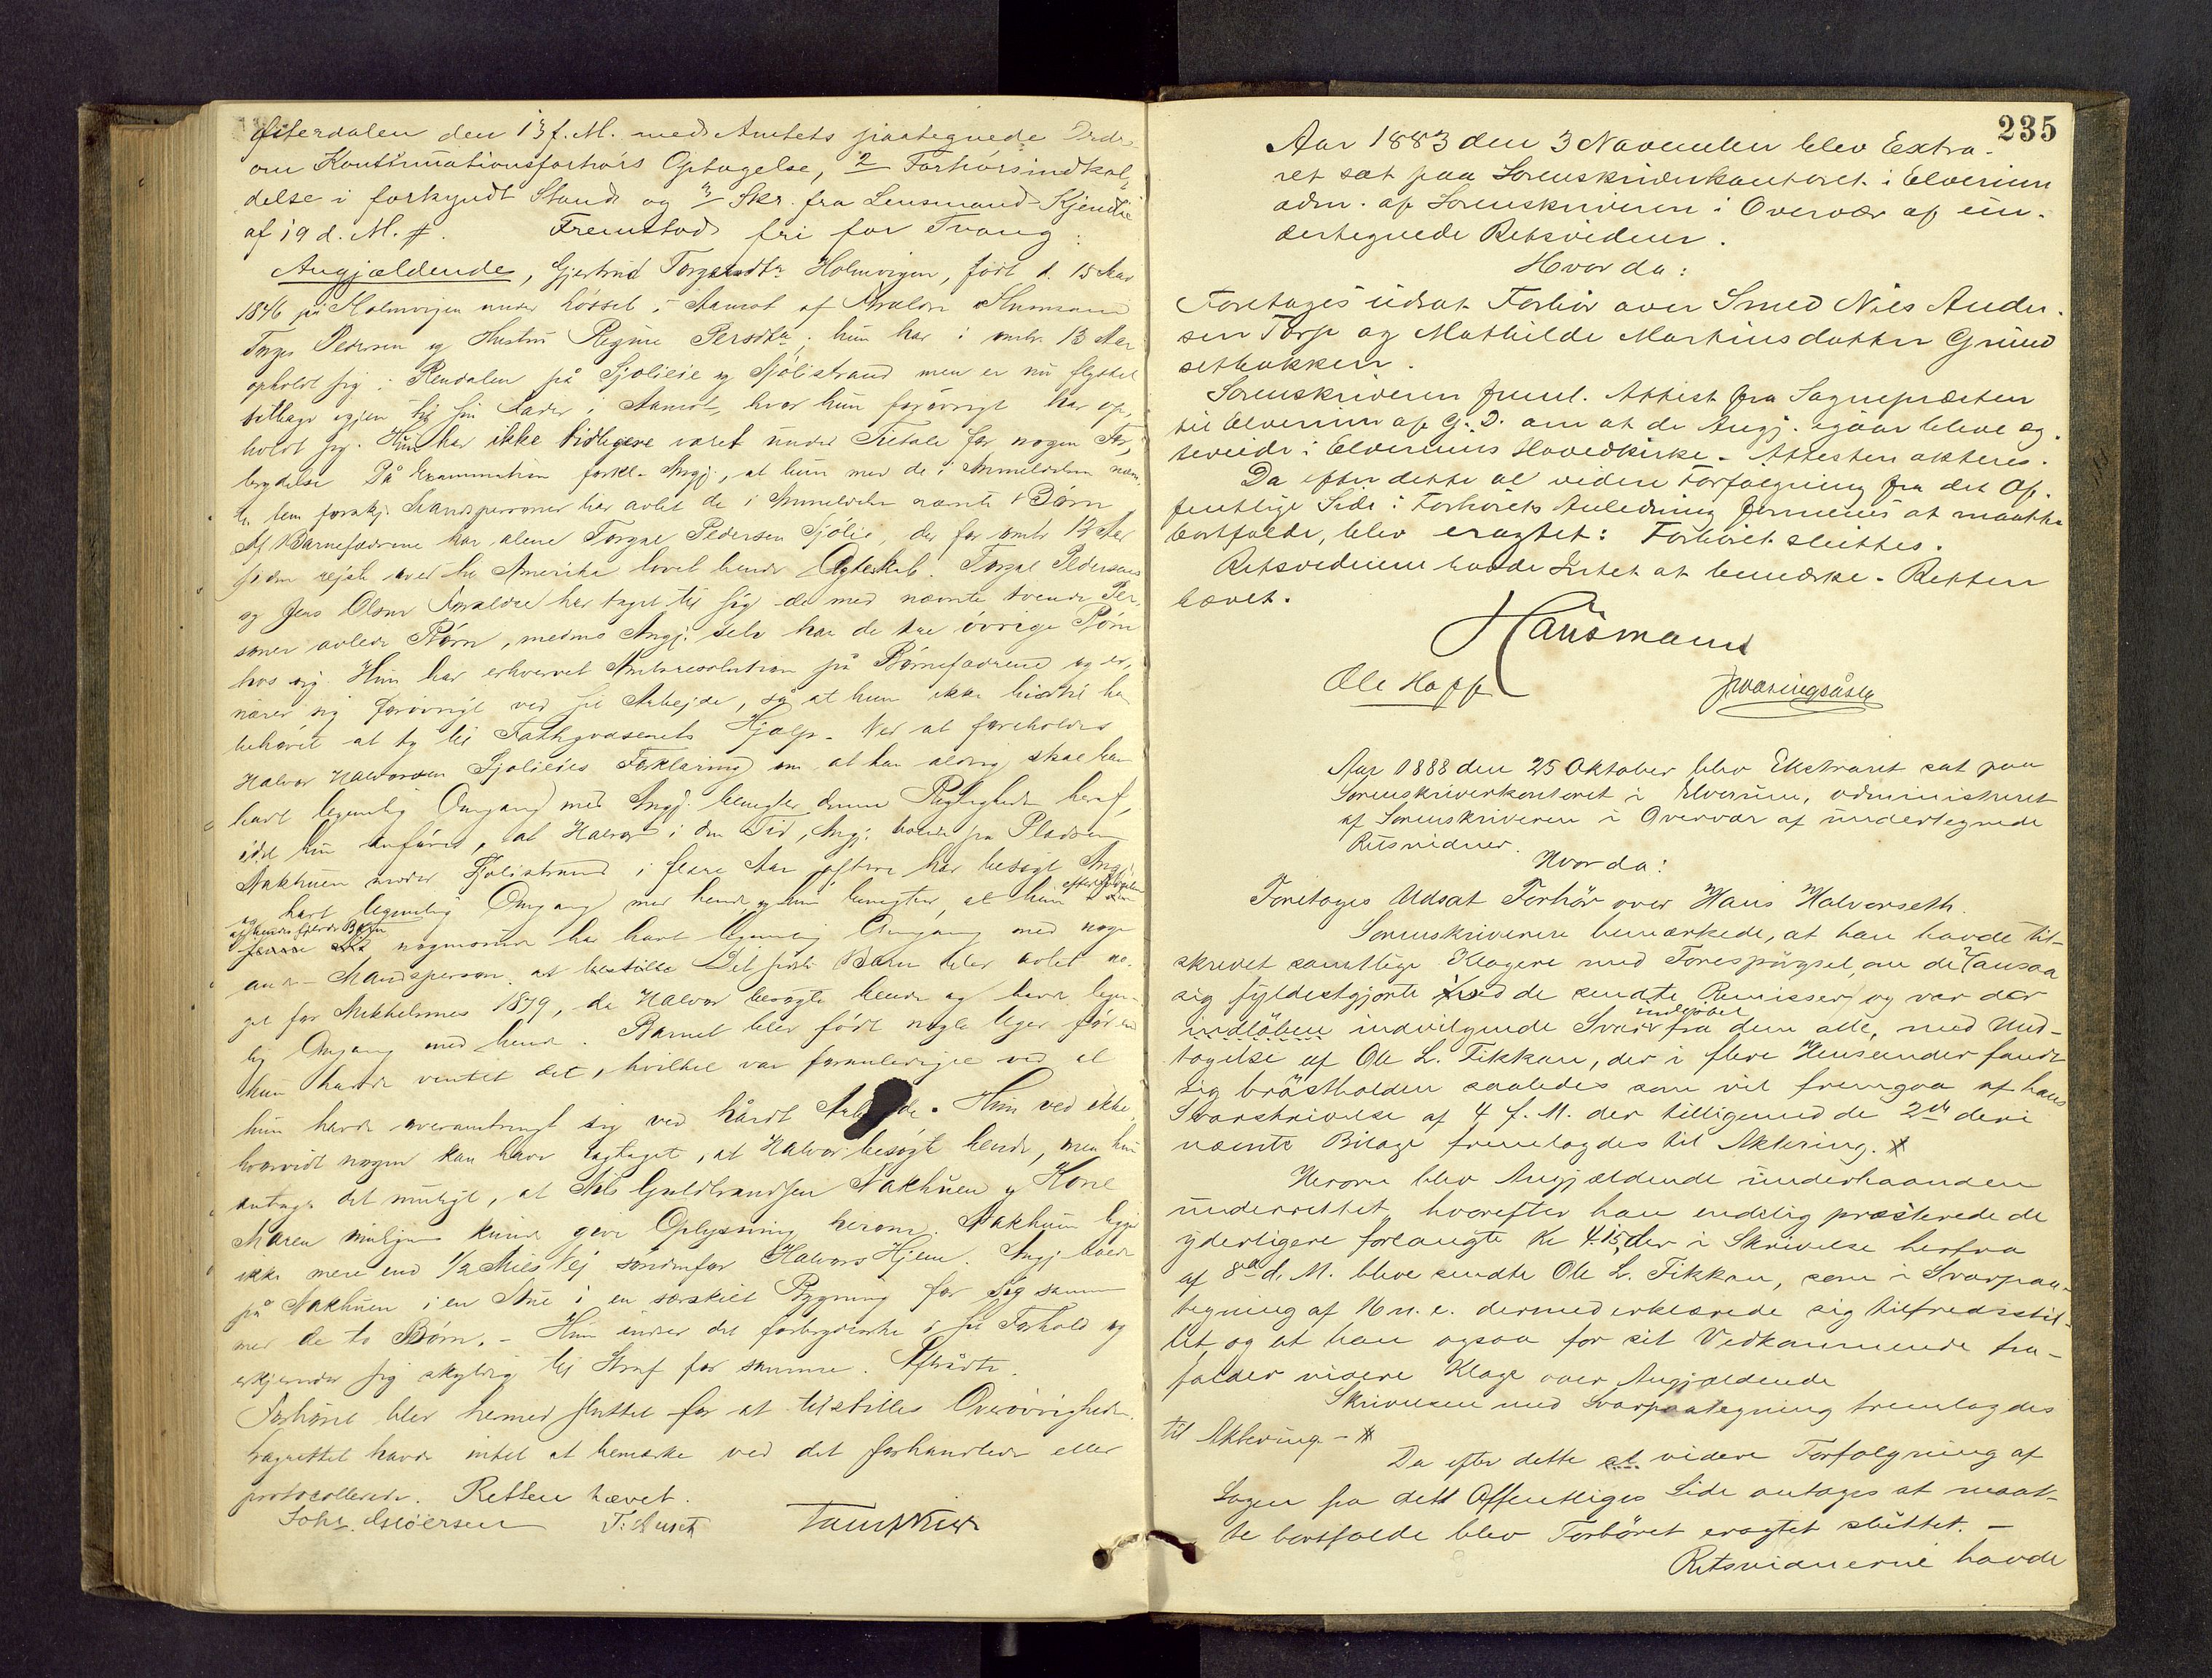 Østerdalen den 13 f. M. med Amtets paategnede Ordre
om Kontinuationsforhørs Optagelse, 2 Forhørsindkal-
delse i forkyndt Stand og 3 Skr. fra Lensmand Kjendlie
af 19 d. M. #. Fremstod fri for Tvang:
Angjældende, Gjertrud Torgersdtr Holmvigen, født d. 15 Mar
1846 på Holmvigen under Løsset i Aamot af Forældre Husmand
Torger Pedersen og Hustru Regine Persdtr; hun har i omtr. 13 Aar
opholdt sig i Rendalen på Sjølieie og Sjølistrand men er nu flyttet
tilbage igjen til sin Fader i Aamot, hvor hun forøvrigt har op-
holdt sig. Hun har ikke tidligere været under Tiltale for nogen For-
brydelse. På Examination forkl. Angj., at hun med de i Anmeldelsen nævn-
te fem forskj. Mandspersoner har avlet de i Anmeldelsen nævnte 5 Børn
Af Barnefædrene har alene Torgal Pedersen Sjølie, der for omtr 12 Aar
siden rejste over til Amerika lovet hende Ægteskab. Torgal Pedersens
og Jens Olsens Forældre har taget til sig de med nævnte tvende Per-
soner avlede Børn, medens Angj. selv har de tre øvrige Børn
hos sig. Hun har erhvervet Amtsresolution på Børnefædrene og er-
nærer sig forøvrigt ved sit Arbejde, så at hun ikke hidtil har
behøvet at ty til Fattigvæsenets Hjælp. Ved at foreholdes
Halvor Halvorsen Sjølieies Forklaring om at han aldrig skal have
havt legemlig Omgang med Angj. benegter denne Rigtigheden heraf,
idet hun anfører, at Halvor i den Tid, Angj. boede på Pladsen
Nakhuen under Sjølistrand i flere Aar oftere har besøgt Angj.
og havt legemlig Omgang med hende, og hun benegter, at hun efter Fødselen
af hendes fjerde Barn nogensinde har havt legemlig Omgang med nogen
anden Mandsperson. Det femte Barn blev avlet no-
get før Mikkelsmes 1879, da Halvor besøgte hende og havde legem-
lig Omgang med hende. Barnet blev født nogle Uger før end
hun havde ventet det, hvilket var foranlediget ved at
hun havde overanstrengt sig ved hårdt Arbejde. Hun ved ikke
hvorvidt nogen kan have iagttaget, at Halvor besøgte hende, men hun
antager det muligt, at Nils Guldbrandsen Nakhuen og Kone
Maren muligens kunde give Oplysning herom. Nakhuen ligger
ikke mere end 1/2 Miils Vej søndenfor Halvors Hjem. Angj. boede
på Nakhuen i en Stue i en særskilt Bygning for sig sammen
med de to Børn. - Hun indser det forbryderske i sit Forhold og
erkjender sig skyldig til Straf for samme. Aftrådte.
Forhøret blev hermed sluttet for at tilstilles Overøvrigheden.
Lagrettet havde intet at bemærke ved det forhandlede eller
protocollerede. Retten hævet.
235
Aar 1883 den 3 November blev Extra-
ret sat paa Sorenskriverkontoret i Elverum
adm. af Sorenskriveren i Overvær af un-
dertegnede Retsvidner.
Hvor da:
Foretoges udsat Forhør over Smed Nils Ander-
sen Torp og Mathilde Martinsdatter Grund
setbakken.
Sorenskriveren freml. Attest fra Sognepræsten
til Elverum af G. D. om at de Angj. igaar bleve eg-
teviede i Elverums Hovedkirke. - Attesten akteres.
Da efter dette al videre Forfølgning fra det Of-
fentlige Side i Forhørets Anledning formenes at maatte
bortfalde, blev eragtet: Forhøret sluttes.
Retsvidnerne havde Intet at bemærke. - Retten
hævet.
Hansmann
Ole Hoff
Aar 1888 den 25 Oktober blev Ekstraret sat paa
Sorenskriverkontoret i Elverum, administreret
af Sorenskriveren i Overvær af undertegnede
Retsvidner.
Hvor da:
Foretoges Udsat Forhør over Hans Halvorseth.
Sorenskriveren bemærkede, at han havde til-
skrevet samtlige Klagere med Forespørgsel, om de ansaa
sig fyldestgjorte ved de sendte Remisser, og var der
indløben indvilgende Svar indløbet fra dem alle, med Und-
tagelse af Ole L. Fikkan, der i flere Henseender fandt
sig brøstholden saaledes som vil fremgaa af hans
Svarskrivelse af 4 f. M. der tilligemed de 2de deri
nævnte Bilage fremlagdes til Aktering. #
Herom blev Angjældende underhaanden
underrettet, hvorefter han endelig præsterede de
yderligere forlangte Kr 4.15, der i Skrivelse herfra
af 8de d. M. bleve sendte Ole L. Fikkan, som i Svarpaa-
tegning af  dermed erklærede sig tilfredsstil-
let og at han ogsaa for sit Vedkommende fra-
falder videre Klage over Angjældende
Skrivelsen med Svarpaategning fremlagdes
til Aktering - #
Da efter dette al videre Forfølgning af
Sagen fra dett Offentliges Side antages at maat-
te bortfalde blev Forhøret eragtet sluttet. -
Retsvidnerne havde